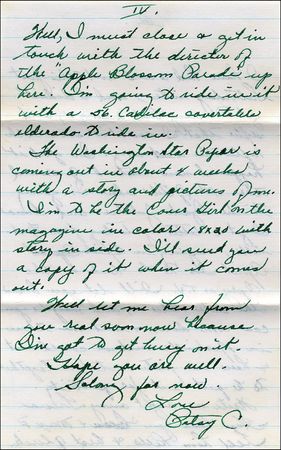 IV.
Well, I must close & get in
touch with the director of
the "Apple Blossom Parade" up
here. I'm going to ride in it
with a 56. Cadilac covertable
eldorado to ride in.
The Washington Star Paper is
coming out in about 4 weeks
with a story and pictures of me.
I'm to be the Cover Girl on the
magazine in color 18x20 with
story in side. I'll send you
a copy of it when it comes
out.
Well let me hear from
you real soon now because
I've got to get busy on it.
Hope you are well.
Solong for now.
Love
Patsy C.